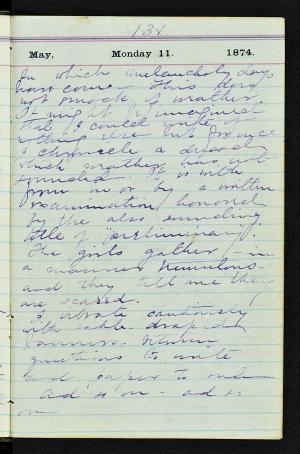 131.
May. Monday 11. 1874.
In which melancholy days
have come. This does
not smack of weather
It might be imagined
that I could write of
nothing else but I once
chronicle a dread
which weather has not
sounded. It is with
from in or by a written
examination, honored
by the also sounding
title of "preliminary".
The girls gather - in
a manner tremulous
and they tell me they
are scared.
I vibrate cautiously
with sable-draped
questions to write
and paper to rule
Ad so on - ad so
on